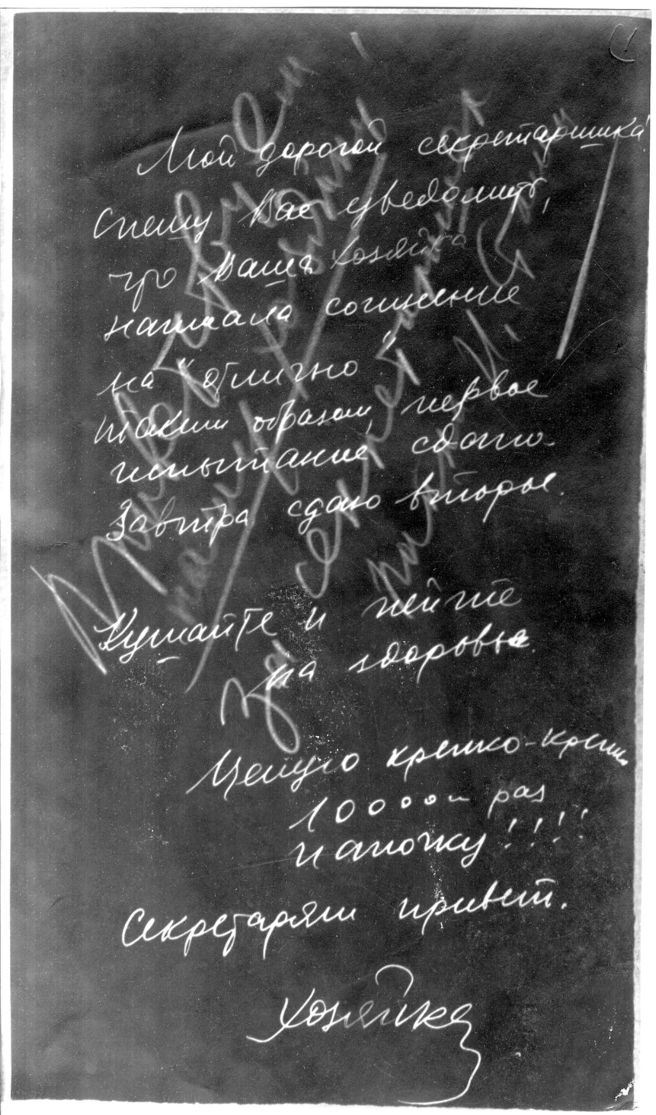 Мой дорогой секреташишка!
Спешу Вас уведомить,
что Ваша Хозяйка
написала сочинение
на "отлично".
Таким образом, первое
испытание сдано.
Завтра сдаю второе.
Кушайте и пейте
на здоровье.
Целую крепко-крепко
10000 раз
папочку!!!!
Секретарям привет.
Хозяйка
За секретаришка
папка И. Сталин